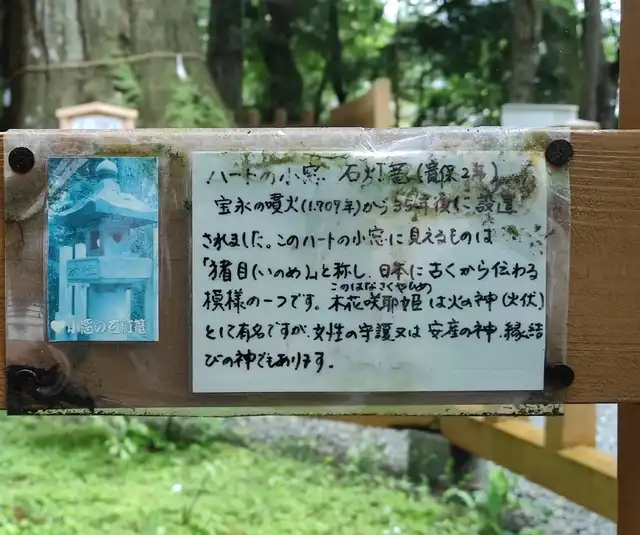 ハートの小窓 石灯篭(寛保2年)
宝永の噴火(1.709年)から35年後に設置
されました。このハートの小窓に見えるものは
「猪目(いのめ)」と称し、日本に古くから伝わる
このはなさくやひめ
模様の一つです。木花咲耶姫は火の神(火伏)
として有名ですが、女性の守護又は安産の神、縁結
びの神でもあります。
小窓の石灯篭